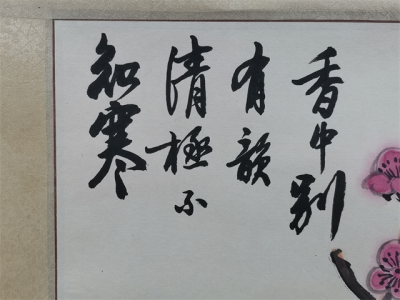 香中别
有韵
清極不
知寒